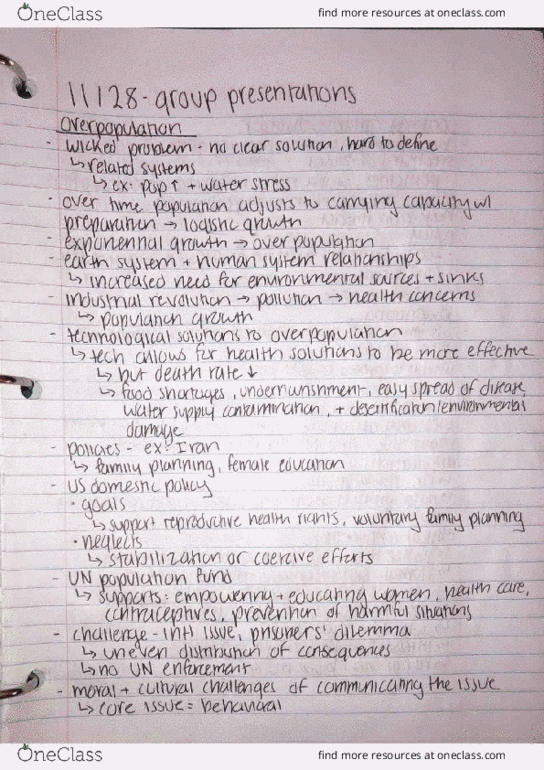 OneClass find more resources at oneclass.com
11/28 - group presentations
Overpopulation
- wicked problem - no clear solution, hard to define
↳ related systems
↳ ex: pop ↑ + water stress
- over time population adjusts to carrying capacity w/
preparation → logistic growth
- exponential growth → over population
- earth system + human system relationships
↳ increased need for environmental sources + sinks
- industrial revolution → pollution → health concerns
↳ population growth
- technological solutions to overpopulation
↳ tech allows for health solutions to be more effective
↳ but death rate ↓
↳ food shortages, undernourishment, easy spread of disease,
water supply contamination, + desertification/environmental
damage
- policies - ex: Iran
↳ family planning, female education
- US domestic policy
• goals
↳ support reproductive health rights, voluntary family planning
• neglects
↳ stabilization or coercive efforts
- UN population fund
↳ supports: empowering + educating women, health care,
contraceptives, prevention of harmful situations
- challenge - intl issue, prisoners' dilemma
↳ uneven distribution of consequences
↳ no UN enforcement
- moral + cultural challenges of communicating the issue
↳ core issue = behavioral
OneClass find more resources at oneclass.com